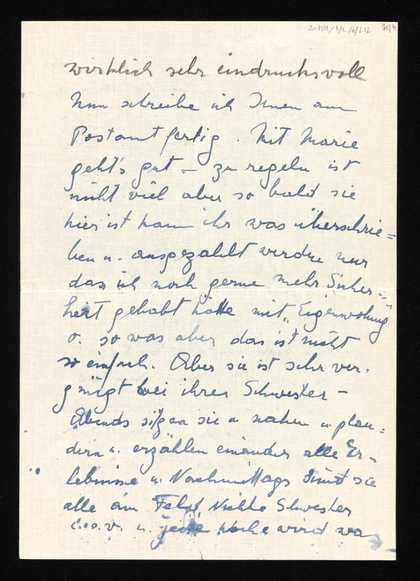 wirklich sehr eindrucksvoll
Nun schreibe ich Ihnen am
Postamt fertig. Mit Marie
geht's gut – zu regeln ist
nicht viel aber so bald sie
hier ist kann ihr was überschrie=
ben u. ausgezahlt werden nur
dass ich noch gerne mehr Sicher=
heit gehabt hätte mit „Eigenwohnung"
o. so was aber das ist nicht
so einfach. Aber sie ist sehr ver.
gnügt bei ihrer Schwester –
Abends sitzen sie u nähen u plau=
dern u. erzählen einander alle Er-
lebnisse u. Nachmittags sind sie
alle am Feld, Schwester
u. jede Woche wird was